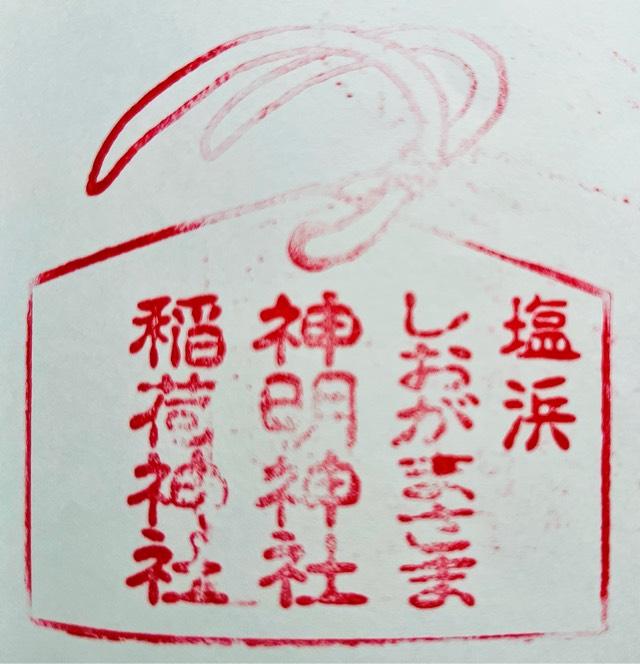 塩浜
しおがまさま
神明神社
稲荷神社